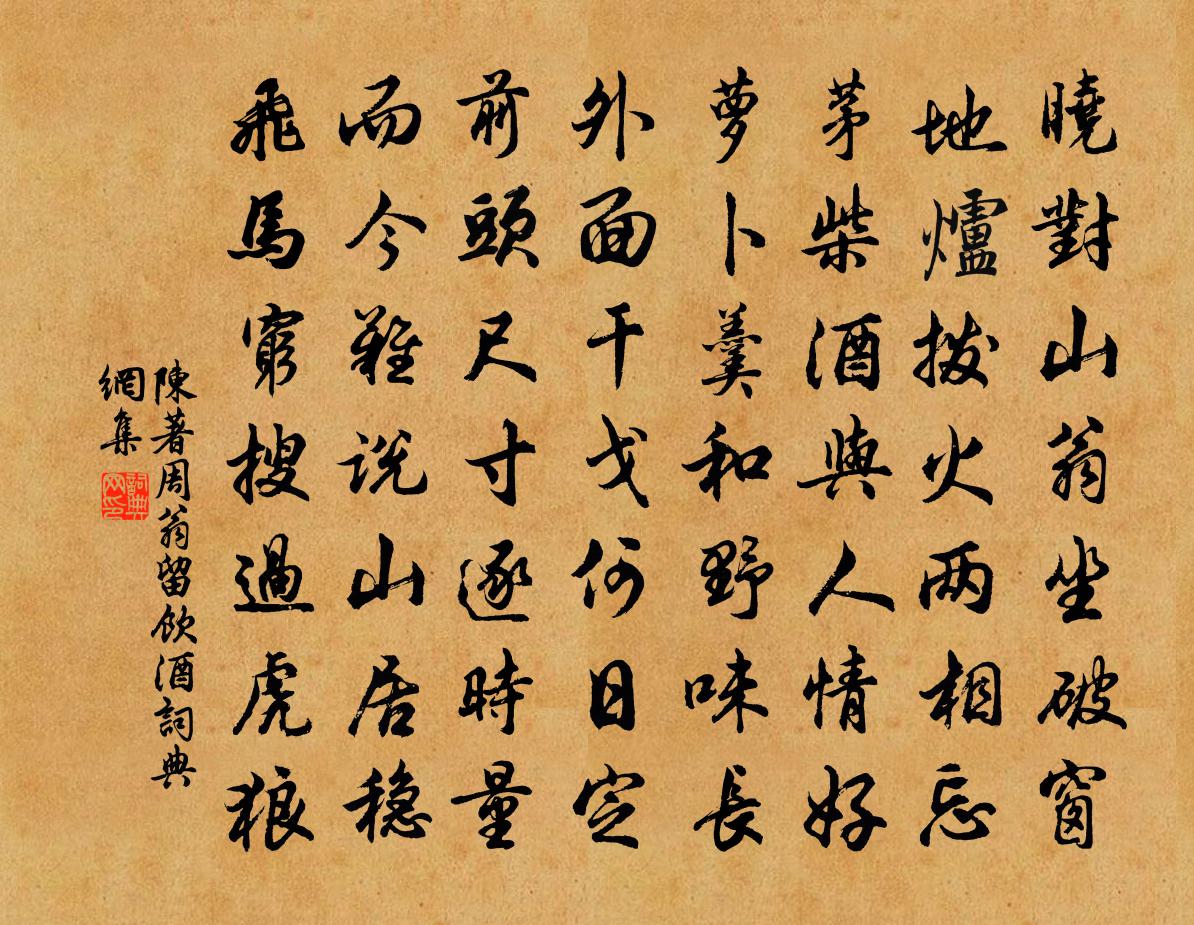 曉對山翁坐破窗
地爐撥火两相忘
茅柴酒與人情好
萝卜羹和野味長
外面干戈何日定
前頭尺寸逐時量
而今難说山居稳
飛馬窮搜過虎狼
陳著周翁留飲酒詞典
網集
詞典
网印